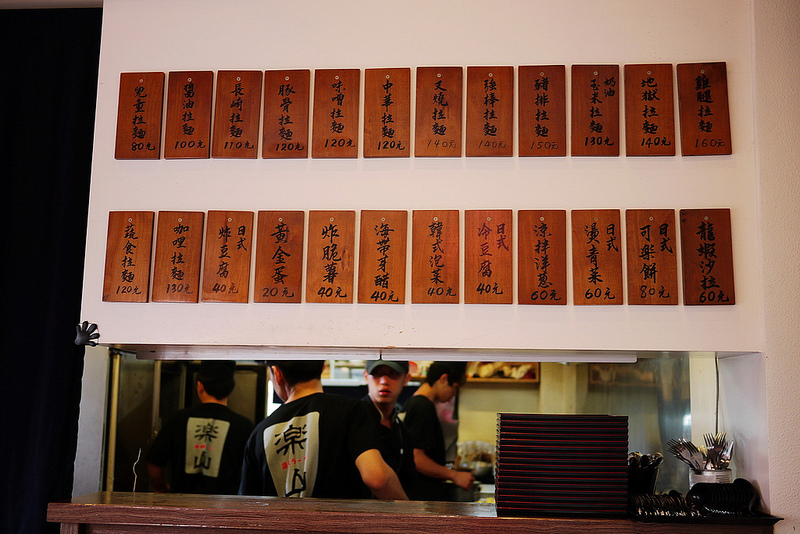 兒童拉麵 80元
醬油拉麵 100元
長崎拉麵 110元
豚骨拉麵 120元
味噌拉麵 120元
中華拉麵 120元
叉燒拉麵 140元
強棒拉麵 140元
豬排拉麵 150元
奶油玉米拉麵 130元
地獄拉麵 140元
雞腿拉麵 160元
蔬食拉麵 120元
咖哩拉麵 130元
日式炸豆腐 40元
黃金蛋 20元
炸脆薯 40元
海帶芽醋 40元
韓式泡菜 40元
日式冷豆腐 40元
涼拌洋蔥 60元
日式燙青菜 60元
日式可樂餅 80元
龍蝦沙拉 60元
楽山
楽山